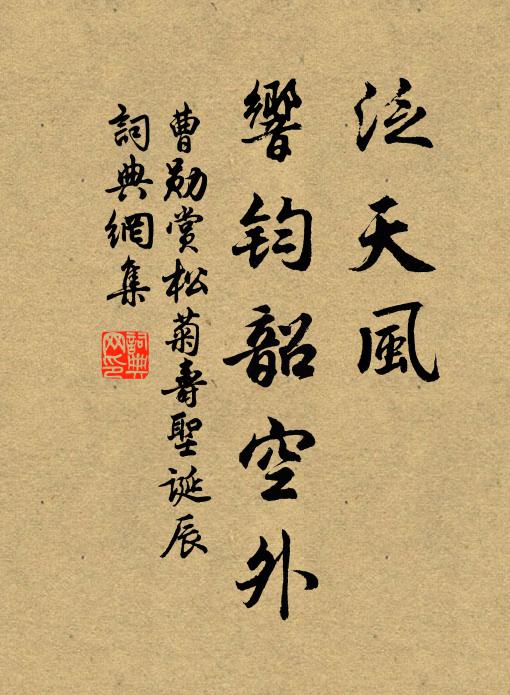 泛天風
響鈞韶空外
曹勛賞松菊壽聖誕辰
詞典網集
詞典網印